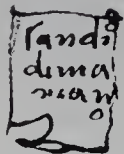 randi
dima
rian
o